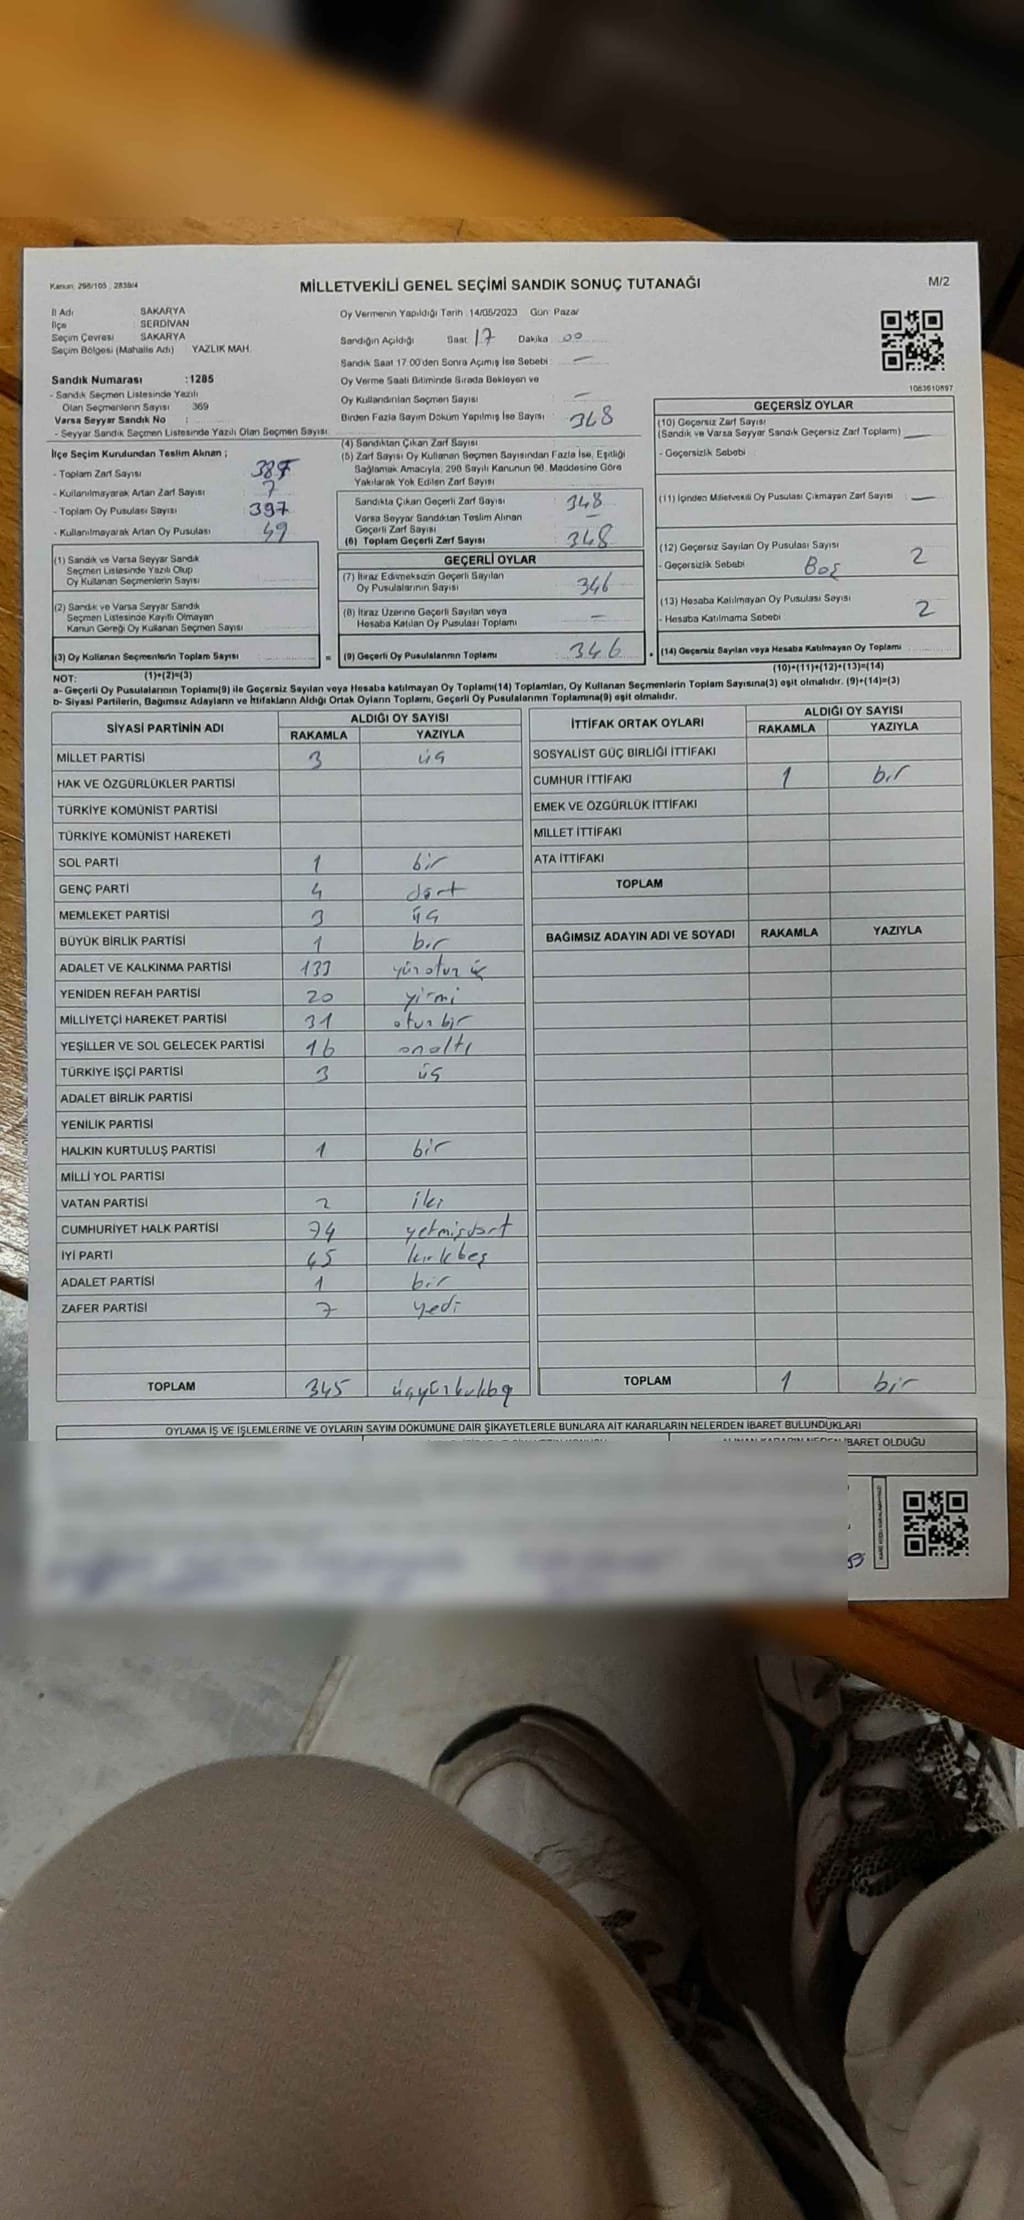 Kanun: 298/105 , 2839/4
MİLLETVEKİLİ GENEL SEÇİMİ SANDIK SONUÇ TUTANAĞI
M/2
İl Adı SAKARYA
İlçe SERDİVAN
Seçim Çevresi SAKARYA
Seçim Bölgesi (Mahalle Adı) YAZLIK MAH.
Sandık Numarası :1285
- Sandık Seçmen Listesinde Yazılı
Olan Seçmenlerin Sayısı 369
Varsa Seyyar Sandık No :
- Seyyar Sandık Seçmen Listesinde Yazılı Olan Seçmen Sayısı:
İlçe Seçim Kurulundan Teslim Alınan ;
- Toplam Zarf Sayısı
- Kullanılmayarak Artan Zarf Sayısı : 7
- Toplam Oy Pusulası Sayısı : 397
- Kullanılmayarak Artan Oy Pusulası : 49
(1) Sandık ve Varsa Seyyar Sandık
Seçmen Listesinde Yazılı Olup
Oy Kullanan Seçmenlerin Sayısı
(2) Sandık ve Varsa Seyyar Sandık
Seçmen Listesinde Kayıtlı Olmayan
Kanun Gereği Oy Kullanan Seçmen Sayısı
(3) Oy Kullanan Seçmenlerin Toplam Sayısı
(1)+(2)=(3)
Oy Vermenin Yapıldığı Tarih : 14/05/2023 Gün: Pazar
Sandığın Açıldığı Saat 17 Dakika 00
Sandık Saat 17.00'den Sonra Açımış İse Sebebi: —
Oy Verme Saati Bitiminde Sırada Bekleyen ve
Oy Kullandırılan Seçmen Sayısı : —
Birden Fazla Sayım Döküm Yapılmış İse Sayısı : 348
(4) Sandıktan Çıkan Zarf Sayısı :
(5) Zarf Sayısı Oy Kullanan Seçmen Sayısından Fazla İse, Eşitliği
Sağlamak Amacıyla, 298 Sayılı Kanunun 98. Maddesine Göre
Yakılarak Yok Edilen Zarf Sayısı :
Sandıkta Çıkan Geçerli Zarf Sayısı : 348
Varsa Seyyar Sandıktan Teslim Alınan
Geçerli Zarf Sayısı : —
(6) Toplam Geçerli Zarf Sayısı : 348
GEÇERLİ OYLAR
(7) İtiraz Edilmeksizin Geçerli Sayılan
Oy Pusulalarının Sayısı : 346
(8) İtiraz Üzerine Geçerli Sayılan veya
Hesaba Katılan Oy Pusulası Toplamı : —
= (9) Geçerli Oy Pusulalarının Toplamı : 346
1083610897
GEÇERSİZ OYLAR
(10) Geçersiz Zarf Sayısı
(Sandık ve Varsa Seyyar Sandık Geçersiz Zarf Toplamı) —
- Geçersizlik Sebebi :
(11) İçinden Milletvekili Oy Pusulası Çıkmayan Zarf Sayısı : —
(12) Geçersiz Sayılan Oy Pusulası Sayısı 2
- Geçersizlik Sebebi Boş
(13) Hesaba Katılmayan Oy Pusulası Sayısı 2
- Hesaba Katılmama Sebebi
+ (14) Geçersiz Sayılan veya Hesaba Katılmayan Oy Toplamı
(10)+(11)+(12)+(13)=(14)
NOT:
a- Geçerli Oy Pusulalarının Toplamı(9) ile Geçersiz Sayılan veya Hesaba katılmayan Oy Toplamı(14) Toplamları, Oy Kullanan Seçmenlerin Toplam Sayısına(3) eşit olmalıdır. (9)+(14)=(3)
b- Siyasi Partilerin, Bağımsız Adayların ve İttifakların Aldığı Ortak Oyların Toplamı, Geçerli Oy Pusulalarının Toplamına(9) eşit olmalıdır.
SİYASİ PARTİNİN ADI
ALDIĞI OY SAYISI
RAKAMLA YAZIYLA
MİLLET PARTİSİ 3 üç
HAK VE ÖZGÜRLÜKLER PARTİSİ
TÜRKİYE KOMÜNİST PARTİSİ
TÜRKİYE KOMÜNİST HAREKETİ
SOL PARTİ 1 bir
GENÇ PARTİ 4 dört
MEMLEKET PARTİSİ 3 üç
BÜYÜK BİRLİK PARTİSİ 1 bir
ADALET VE KALKINMA PARTİSİ 133 yüzotuz üç
YENİDEN REFAH PARTİSİ 20 yirmi
MİLLİYETÇİ HAREKET PARTİSİ 31 otuz bir
YEŞİLLER VE SOL GELECEK PARTİSİ 16 onaltı
TÜRKİYE İŞÇİ PARTİSİ 3 üç
ADALET BİRLİK PARTİSİ
YENİLİK PARTİSİ
HALKIN KURTULUŞ PARTİSİ 1 bir
MİLLİ YOL PARTİSİ
VATAN PARTİSİ 2 iki
CUMHURİYET HALK PARTİSİ 74 yetmişdört
İYİ PARTİ 45 kırkbeş
ADALET PARTİSİ 1 bir
ZAFER PARTİSİ 7 yedi
TOPLAM 345 üçyüzkırkbeş
İTTİFAK ORTAK OYLARI
ALDIĞI OY SAYISI
RAKAMLA YAZIYLA
SOSYALİST GÜÇ BİRLİĞİ İTTİFAKI
CUMHUR İTTİFAKI 1 bir
EMEK VE ÖZGÜRLÜK İTTİFAKI
MİLLET İTTİFAKI
ATA İTTİFAKI
TOPLAM
BAĞIMSIZ ADAYIN ADI VE SOYADI RAKAMLA YAZIYLA
TOPLAM 1 bir
OYLAMA İŞ VE İŞLEMLERİNE VE OYLARIN SAYIM DÖKÜMÜNE DAİR ŞİKAYETLERLE BUNLARA AİT KARARLARIN NELERDEN İBARET BULUNDUKLARI
ALINAN KARARIN NEDEN İBARET OLDUĞU